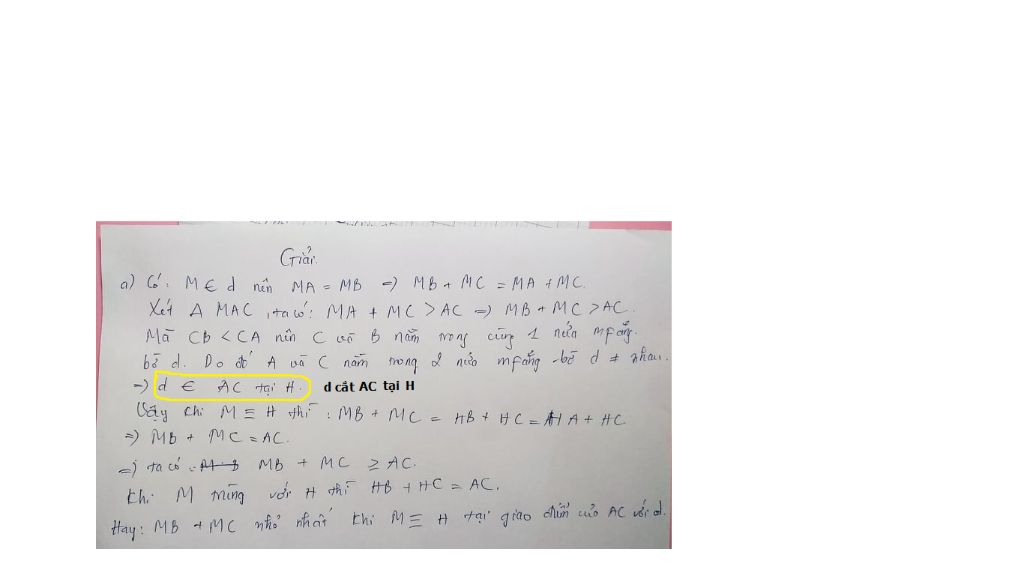 Giải.
a) Có: M ∈ d nên MA = MB => MB + MC = MA + MC.
Xét Δ MAC, ta có: MA + MC > AC => MB + MC > AC.
Mà CB < CA nên C và B nằm trong cùng 1 nửa mfẳng.
bờ d. Do đó A và C nằm trong 2 nửa mfẳng bờ d ≠ nhau.
=> d ∈ AC tại H. d cắt AC tại H
Vậy khi M ≡ H thì: MB + MC = HB + HC = HA + HC
=> MB + MC = AC.
=> ta có: MB + MC ≥ AC.
Khi M trùng với H thì HB + HC = AC.
Hay: MB + MC nhỏ nhất khi M ≡ H tại giao điểm của AC với d.